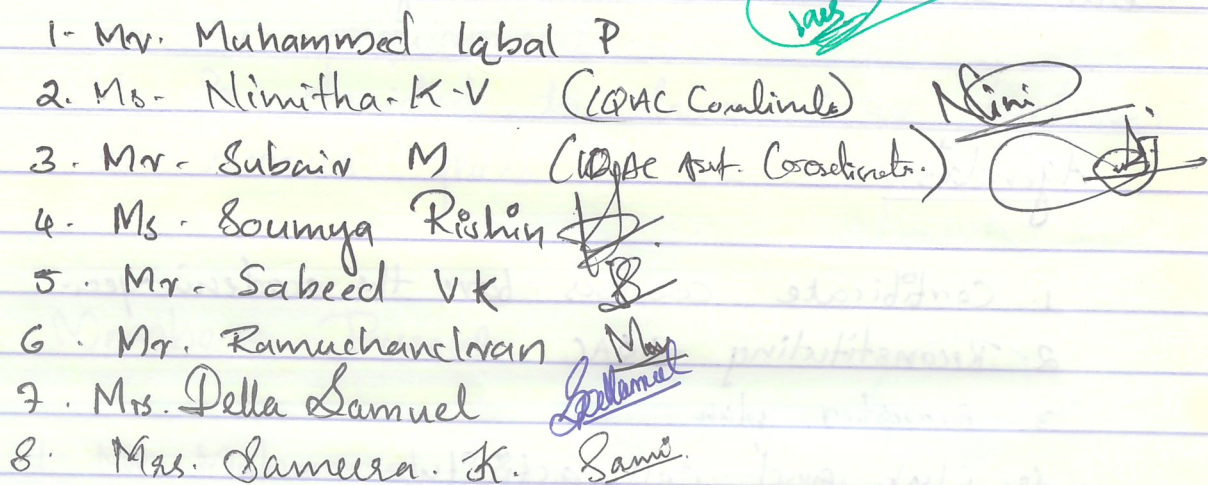 1- Mr. Muhammed Iqbal P
2. Ms. Nimitha. K.V (IQAC Coordinator) Nimi
3. Mr. Subair M (IQAC Asst. Coordinator.)
4. Ms. Soumya Rishin
5. Mr. Sabeed VK
6. Mr. Ramuchandran
7. Mrs. Della Samuel
8. Mrs. Sameera. K. Sami